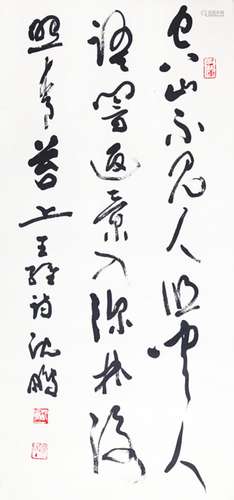 空山不见人但闻人
语响返景入深林復
照青苔上王维诗沈鹏